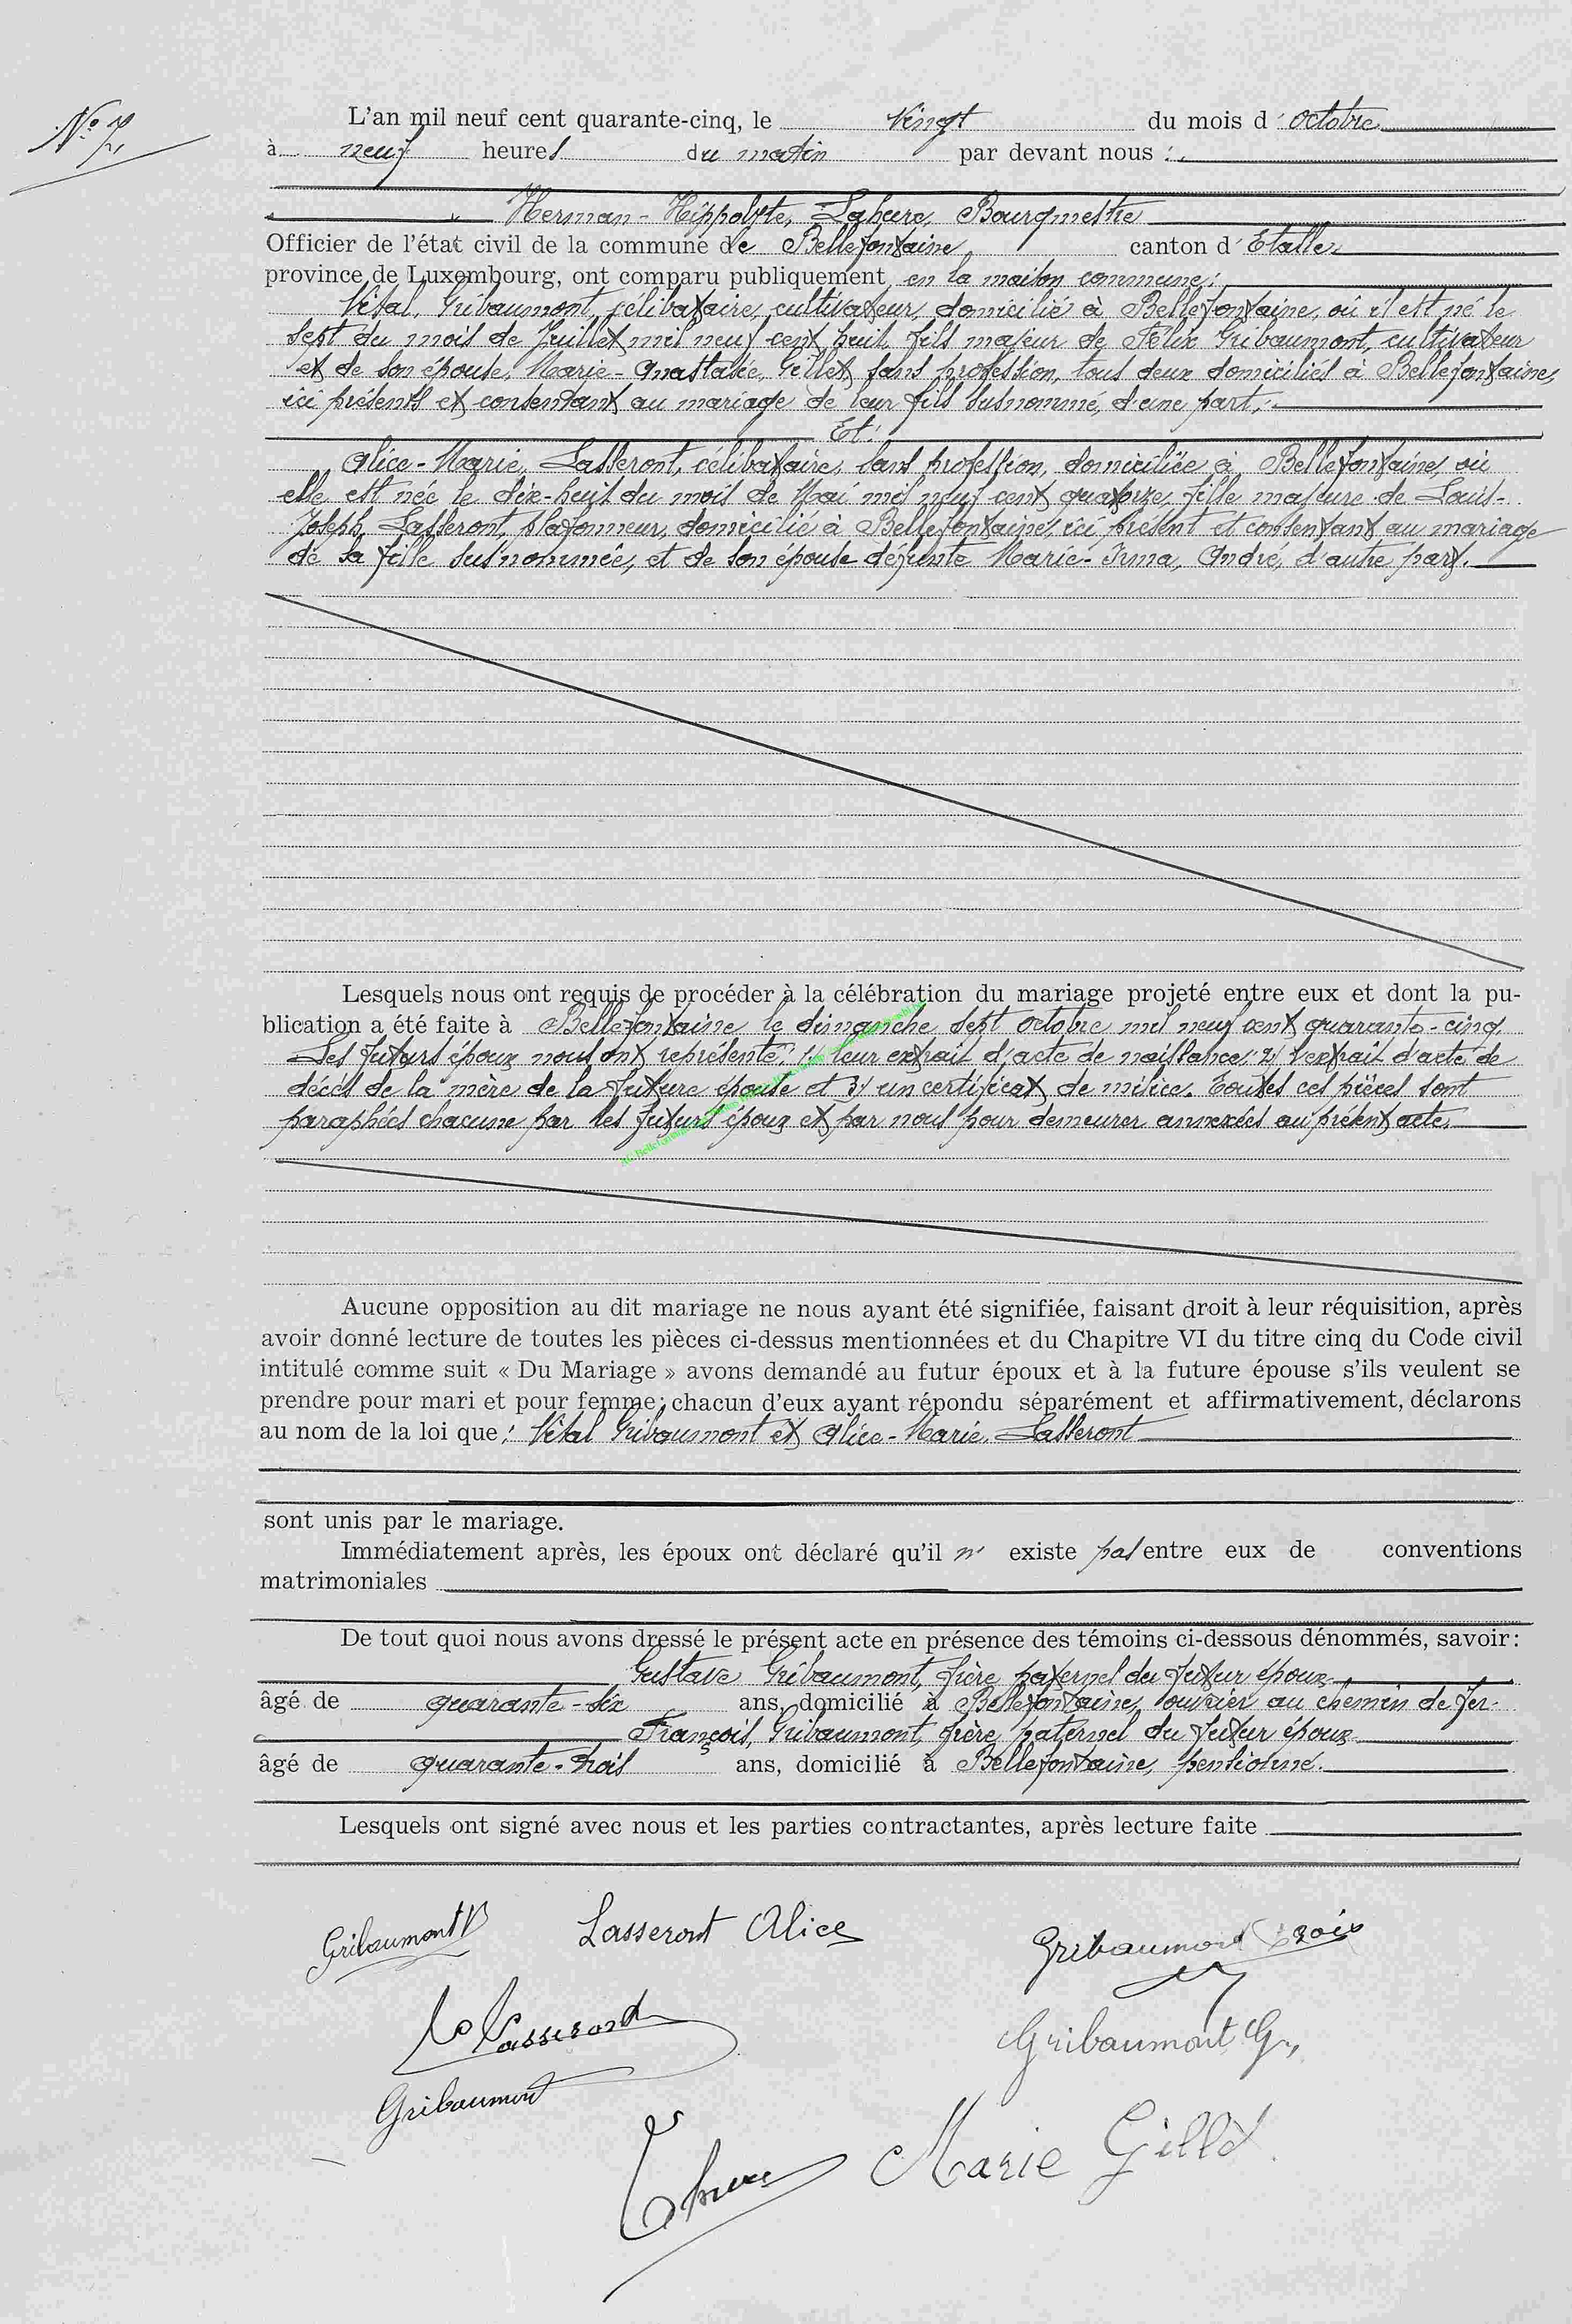 N° 7,
L'an mil neuf cent quarante-cinq, le vingt du mois d'octobre
à neuf heures du matin par devant nous :
Herman-Hippolyte, Lahure, Bourgmestre
Officier de l'état civil de la commune de Bellefontaine canton d'Etalle,
province de Luxembourg, ont comparu publiquement en la maison commune:
Vital, Gribaumont, célibataire, cultivateur, domicilié à Bellefontaine, où il est né le
sept du mois de Juillet mil neuf cent huit, fils majeur de Félix Gribaumont, cultivateur
et de son épouse, Marie-Anastasie, Gillet, sans profession, tous deux domiciliés à Bellefontaine,
ici présents et consentant au mariage de leur fils susnommé, d'une part;
Et:
Alice-Marie, Lasseront, célibataire, sans profession, domiciliée à Bellefontaine, où
elle est née le dix-huit du mois de Mai mil neuf cent quatorze, fille majeure de Louis-
Joseph, Lasseront, plafonneur, domicilié à Bellefontaine, ici présent et consentant au mariage
de sa fille susnommée, et de son épouse défunte Marie-Irma, André, d'autre part.
Lesquels nous ont requis de procéder à la célébration du mariage projeté entre eux et dont la pu-
blication a été faite à Bellefontaine le dimanche sept octobre mil neuf cent quarante-cinq.
Les futurs époux nous ont représenté: 1) leur extrait d'acte de naissance; 2) l'extrait d'acte de
décès de la mère de la future épouse et 3) un certificat de milice. Toutes ces pièces sont
paraphées chacune par les futurs époux et par nous pour demeurer annexées au présent acte.
Aucune opposition au dit mariage ne nous ayant été signifiée, faisant droit à leur réquisition, après
avoir donné lecture de toutes les pièces ci-dessus mentionnées et du Chapitre VI du titre cinq du Code civil
intitulé comme suit « Du Mariage » avons demandé au futur époux et à la future épouse s'ils veulent se
prendre pour mari et pour femme; chacun d'eux ayant répondu séparément et affirmativement, déclarons
au nom de la loi que: Vital Gribaumont et Alice-Marie, Lasseront
sont unis par le mariage.
Immédiatement après, les époux ont déclaré qu'il n' existe pas entre eux de conventions
matrimoniales
De tout quoi nous avons dressé le présent acte en présence des témoins ci-dessous dénommés, savoir:
Gustave Gribaumont, frère paternel du futur époux
âgé de quarante-six ans, domicilié à Bellefontaine, ouvrier au chemin de fer.
François, Gribaumont, frère paternel du futur époux
âgé de quarante-trois ans, domicilié à Bellefontaine, pensionné.
Lesquels ont signé avec nous et les parties contractantes, après lecture faite
Gribaumont V Lasseront Alice Gribaumont Frois
Ls Lasseront
Gribaumont G.,
Gribaumont
Lahure Marie Gillet